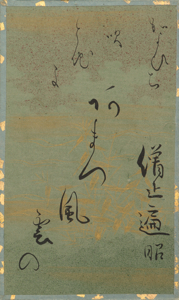 僧正遍昭
あまつ
風
雲の
かよひち
吹
とち
よ